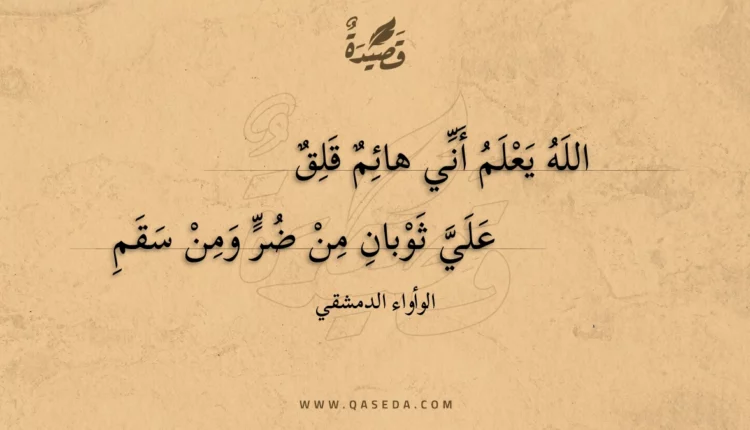 قَصِيدَةٌ
اللَهُ يَعْلَمُ أَنِّي هائِمٌ قَلِقٌ
عَلَيَّ ثَوْبانِ مِنْ ضُرٍّ وَمِنْ سَقَمِ
الوأواء الدمشقي
WWW.QASEDA.COM